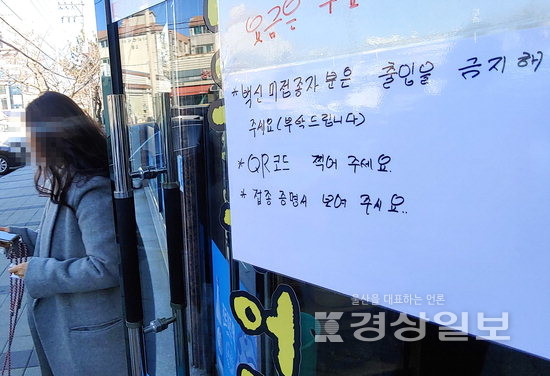 요금은
* 백신 미접종자 분은 출입을 금지해
주세요 (부속드립니다)
* QR코드 찍어 주세요.
* 접종 증명서 보여 주시요..
울산을 대표하는 언론
경상일보